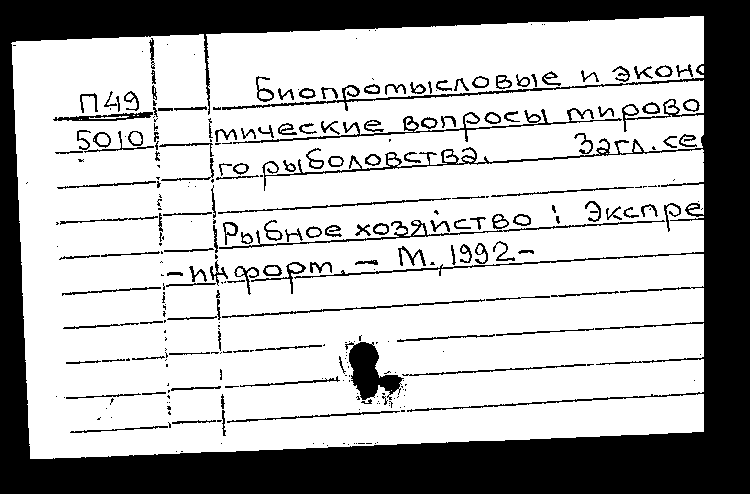 П49
5010
Биопромысловые и эконо
мические вопросы мирово
го рыболовства. Загл. сер
Рыбное хозяйство : Экспре
-информ. - М., 1992-